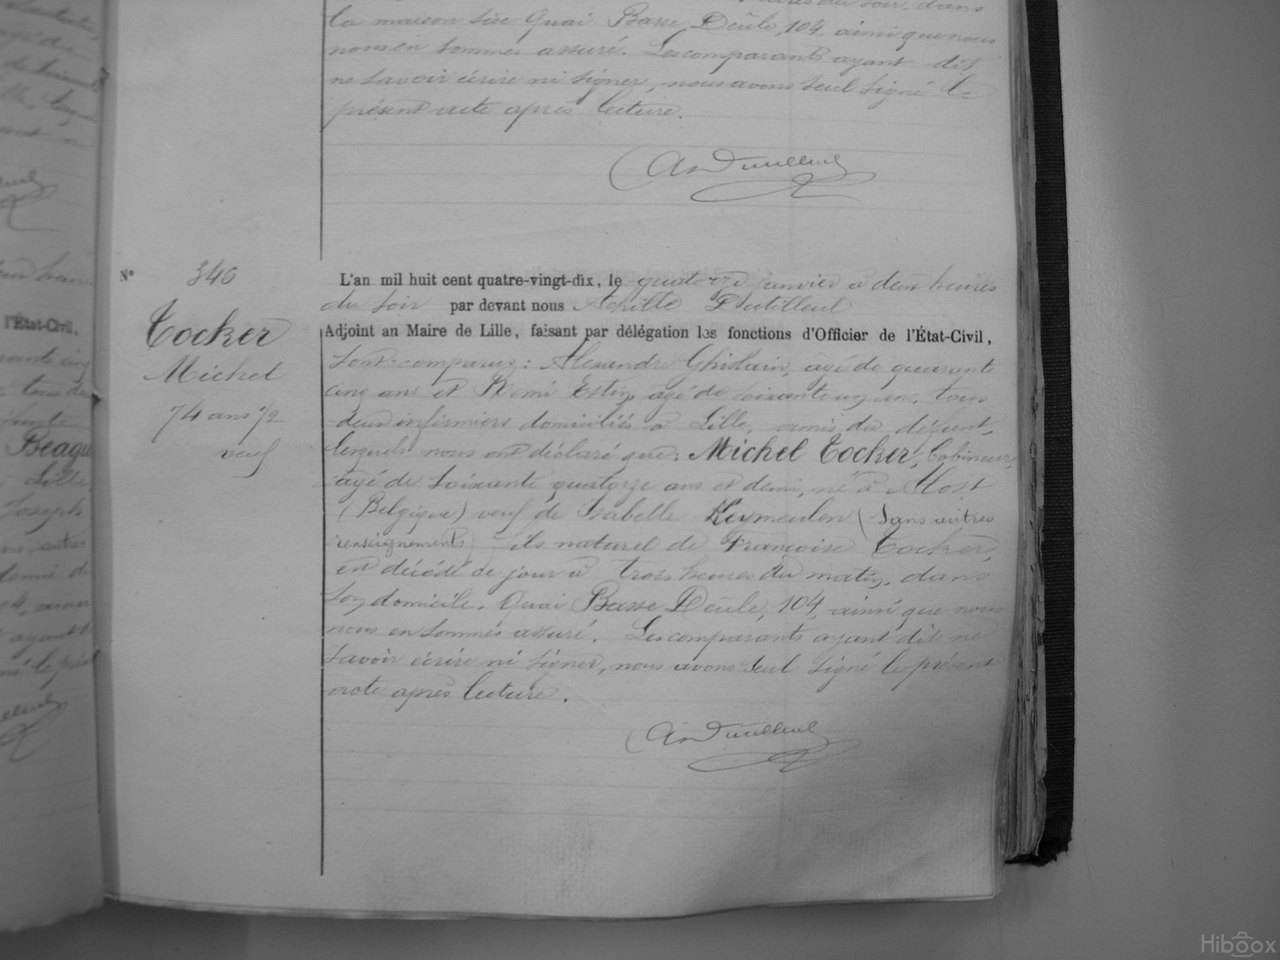 la maison sise Quai Basse Deûle, 104, ainsi que nous
nous en sommes assuré. Les comparants ayant dit
ne savoir écrire ni signer, nous avons seul signé le
présent acte après lecture.
N° 346
Tocker
Michel
74 ans 1/2
veuf
L'an mil huit cent quatre-vingt-dix, le quatorze janvier à deux heures
du soir par devant nous Achille Dutilleul
Adjoint au Maire de Lille, faisant par délégation les fonctions d'Officier de l'État-Civil,
sont comparus: Alexandre Ghislain, âgé de quarante
cinq ans et Rémi Estin, âgé de soixante un ans, tous
deux infirmiers domiciliés à Lille, amis du défunt,
lesquels nous ont déclaré que: Michel Tocker, bobineur,
âgé de soixante quatorze ans et demi, né à Alost
(Belgique) veuf de Isabelle Keymeulen (sans autres
renseignements) fils naturel de Françoise Tocker,
est décédé ce jour à trois heures du matin, dans
son domicile, Quai Basse Deûle, 104, ainsi que nous
nous en sommes assuré. Les comparants ayant dit ne
savoir écrire ni signer, nous avons seul signé le présent
acte après lecture.
l'État-Civil,
Lille,
Joseph
Hiboox